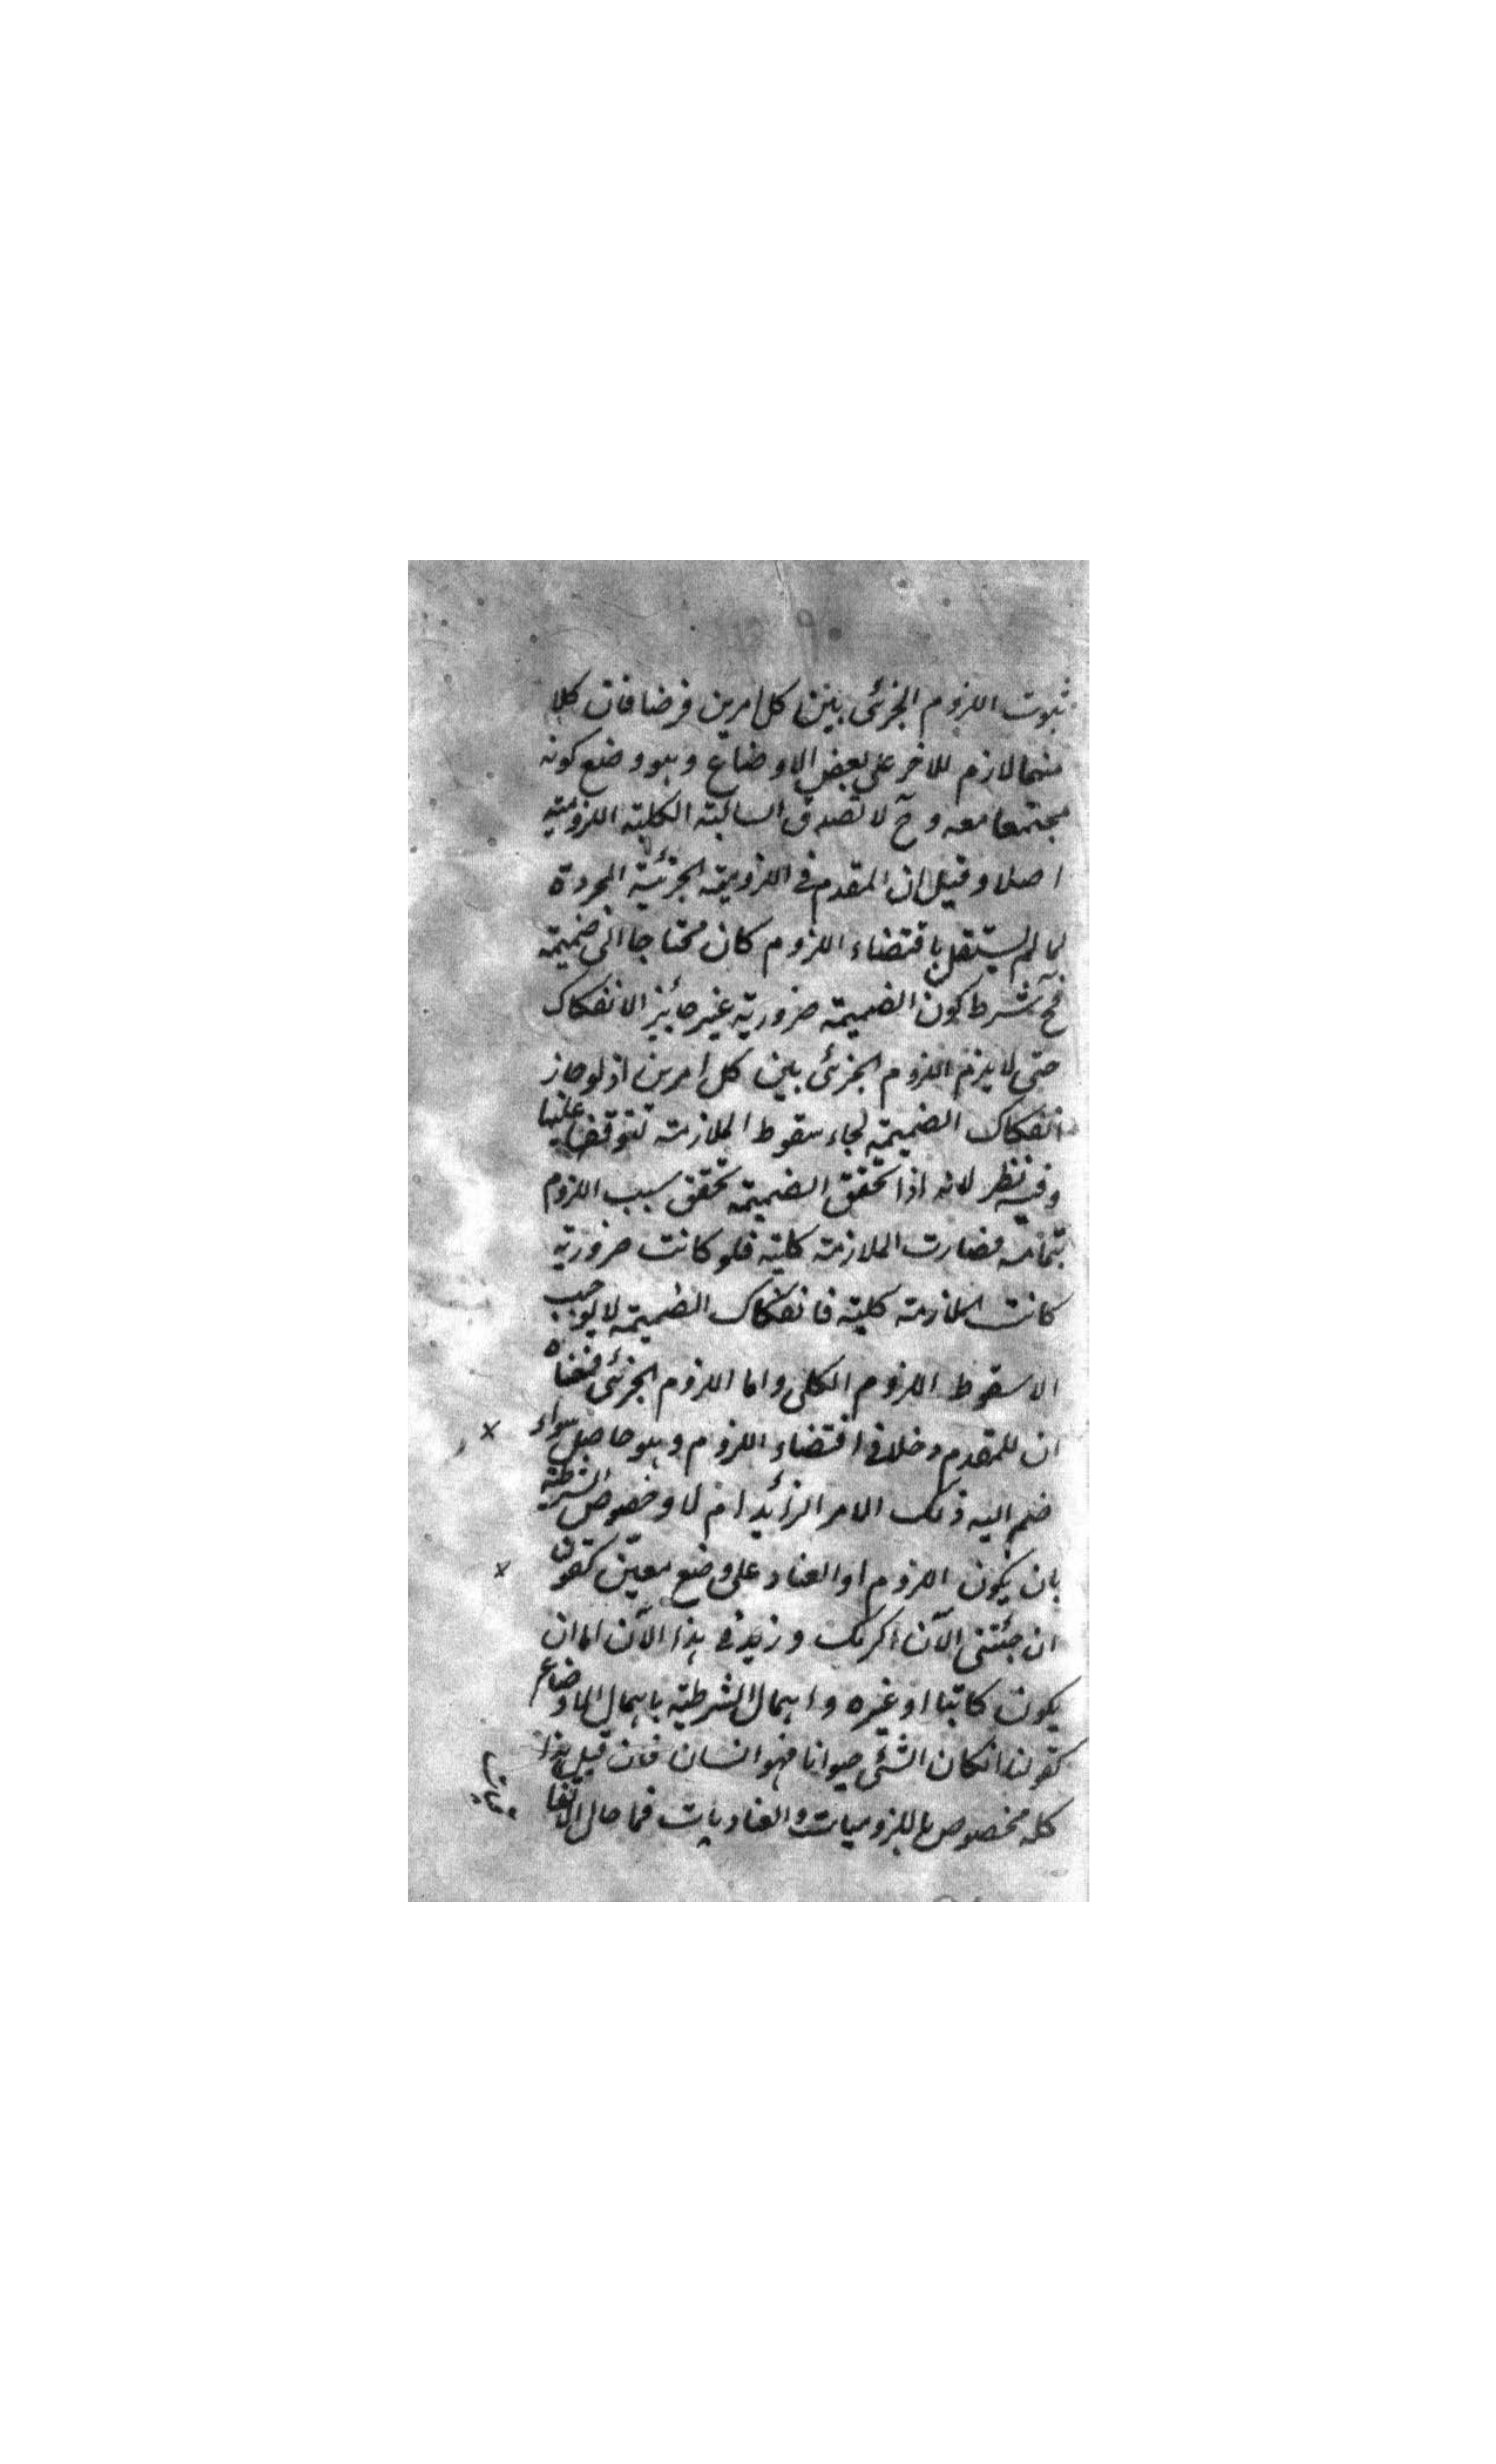 ثبوت اللزوم الجزئى بين كل امرين فرضا فان كلا
منهما لازم للاخر على بعض الاوضاع وهو وضع كونه
مجتمعا معه وح لا تصدق السالبة الكلية اللزومية
اصلا وقيل ان المقدم فى اللزومية الجزئية المجردة
لما لم يستقل باقتضاء اللزوم كان محتاجا الى ضميمة
فح يشرط كون الضميمة ضرورية غير جائز الانفكاك
حتى لا يلزم اللزوم الجزئى بين كل امرين اذ لو جاز
انفكاك الضميمة لجاء سقوط الملازمة لتوقفها عليها
وفيه نظر لانه اذا تحقق الضميمة تحقق سبب اللزوم
بتمامه فصارت الملازمة كلية فلو كانت ضرورية
كانت الملازمة كلية فانفكاك الضميمة لا يوجب
الا سقوط اللزوم الكلى واما اللزوم الجزئى فمعناه
ان للمقدم دخلا فى اقتضاء اللزوم وهو حاصل سواء
ضم اليه ذلك الامر الزائد ام لا وخصوص الشرطية
بان يكون اللزوم او العناد على وضع معين كقولن
ان جئتنى الآن اكرمك وزيد فى هذا الآن اما ان
يكون كاتبا او غيره واهمال الشرطية باهمال الاوضاع
كقولنا انكان الشئ حيوانا فهو انسان فان قيل هذا
كله مخصوص باللزوميات والعناديات فما حال الاتفا